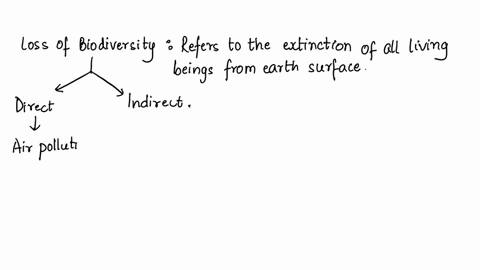 Loss of Biodiversity : Refers to the extinction of all living
beings from earth surface.
Direct
Indirect.
Air polluti